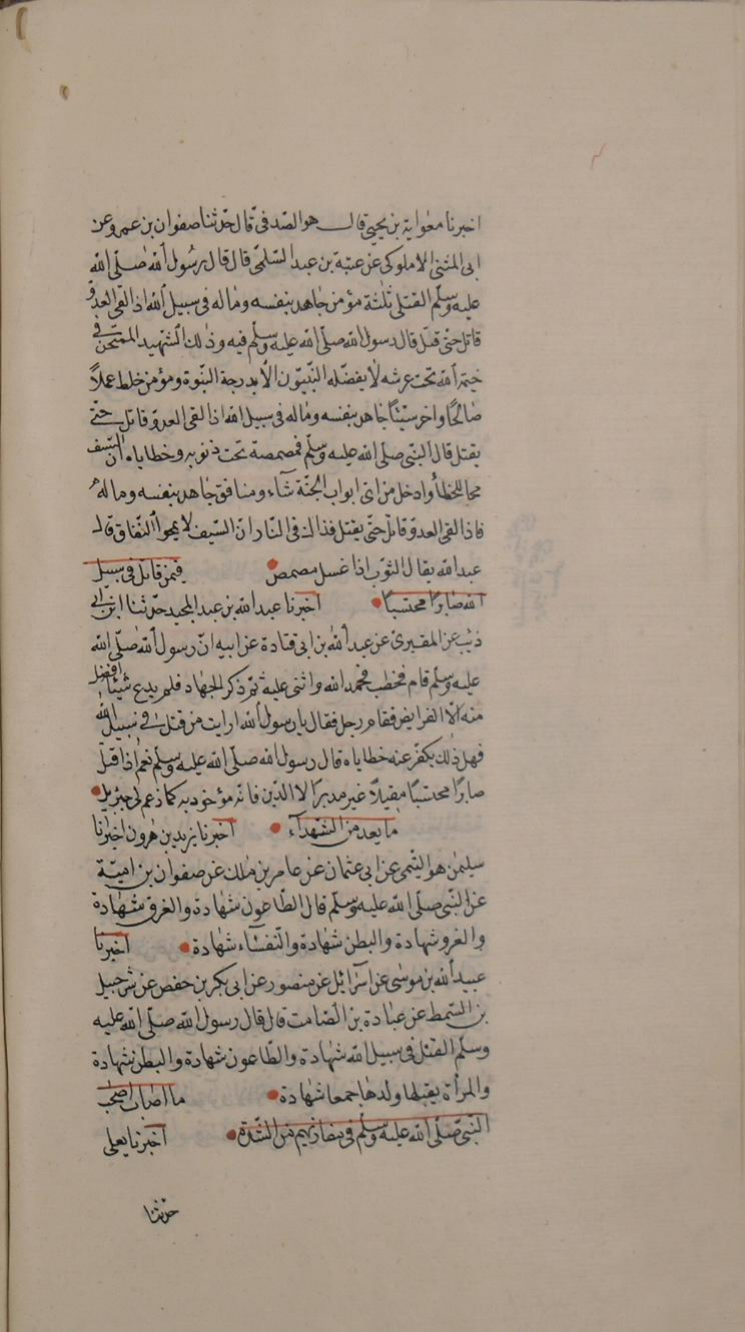 اخبرنا معوية بن يحيى قال هو الصدفى قال حدثنا صفوان بن عمرو عن
ابى المثنى الاملوكى عن عتبة بن عبد السلمى قال قال رسول الله صلى الله
عليه وسلم القتلى ثلثة مؤمن جاهد بنفسه وماله فى سبيل الله اذا لقى العدو
قاتل حتى قتل قال رسول الله صلى الله عليه وسلم فيه وذلك الشهيد الممتحن فى
خيمة الله تحت عرشه لا يفضله النبيون الا بدرجة النبوة ومؤمن خلط عملا
صالحا واخر سيئا جاهد بنفسه وماله فى سبيل الله اذا لقى العدو قاتل حتى
يقتل قال النبى صلى الله عليه وسلم فمصمصة تحت ذنوبه وخطاياه ان السيف
محا للخطأ وادخل من اى ابواب الجنة شاء ومنافق جاهد بنفسه وماله
فاذا لقى العدو قاتل حتى يقتل فذاك فى النار ان السيف لا يمحوا النفاق قال
عبد الله يقال الثوب اذا غسل مصمص فيمن قاتل فى سبيل
الله صابرا محتسبا اخبرنا عبيد الله بن عبد المجيد حدثنا ابن ابى
ذئب عن المقبرى عن عبد الله بن ابى قتادة عن ابيه ان رسول الله صلى الله
عليه وسلم قام فخطب فحمد الله واثنى عليه ثم ذكر الجهاد فلم يدع شيئا افضل
منه الا الفرايض فقام رجل فقال يا رسول الله ارايت من قتل فى سبيل الله
فهل ذلك يكفر عنه خطاياه قال رسول الله صلى الله عليه وسلم نعم اذا قتل
صابرا محتسبا مقبلا غير مدبر الا الدين فانه مؤخوذ به كما زعم لى جبريل
ما يعد من الشهدآء اخبرنا يزيد بن هرون اخبرنا
سليمن هو التيمى عن ابى عثمان عن عامر بن ملك عن صفوان بن امية
عن النبى صلى الله عليه وسلم قال الطاعون شهادة والغرق شهادة
والغزو شهادة والبطن شهادة والنفسآء شهادة اخبرنا
عبيد الله بن موسى عن اسرآئيل عن منصور عن ابى بكر بن حفص عن شرحبيل
بن السمط عن عبادة بن الصامت قال قال رسول الله صلى الله عليه
وسلم القتل فى سبيل الله شهادة والطاعون شهادة والبطن شهادة
والمرأة يقتلها ولدها جمعا شهادة ما اصاب اصحاب
النبى صلى الله عليه وسلم فى مغازيهم من الشدة اخبرنا يعلى
حدثنا